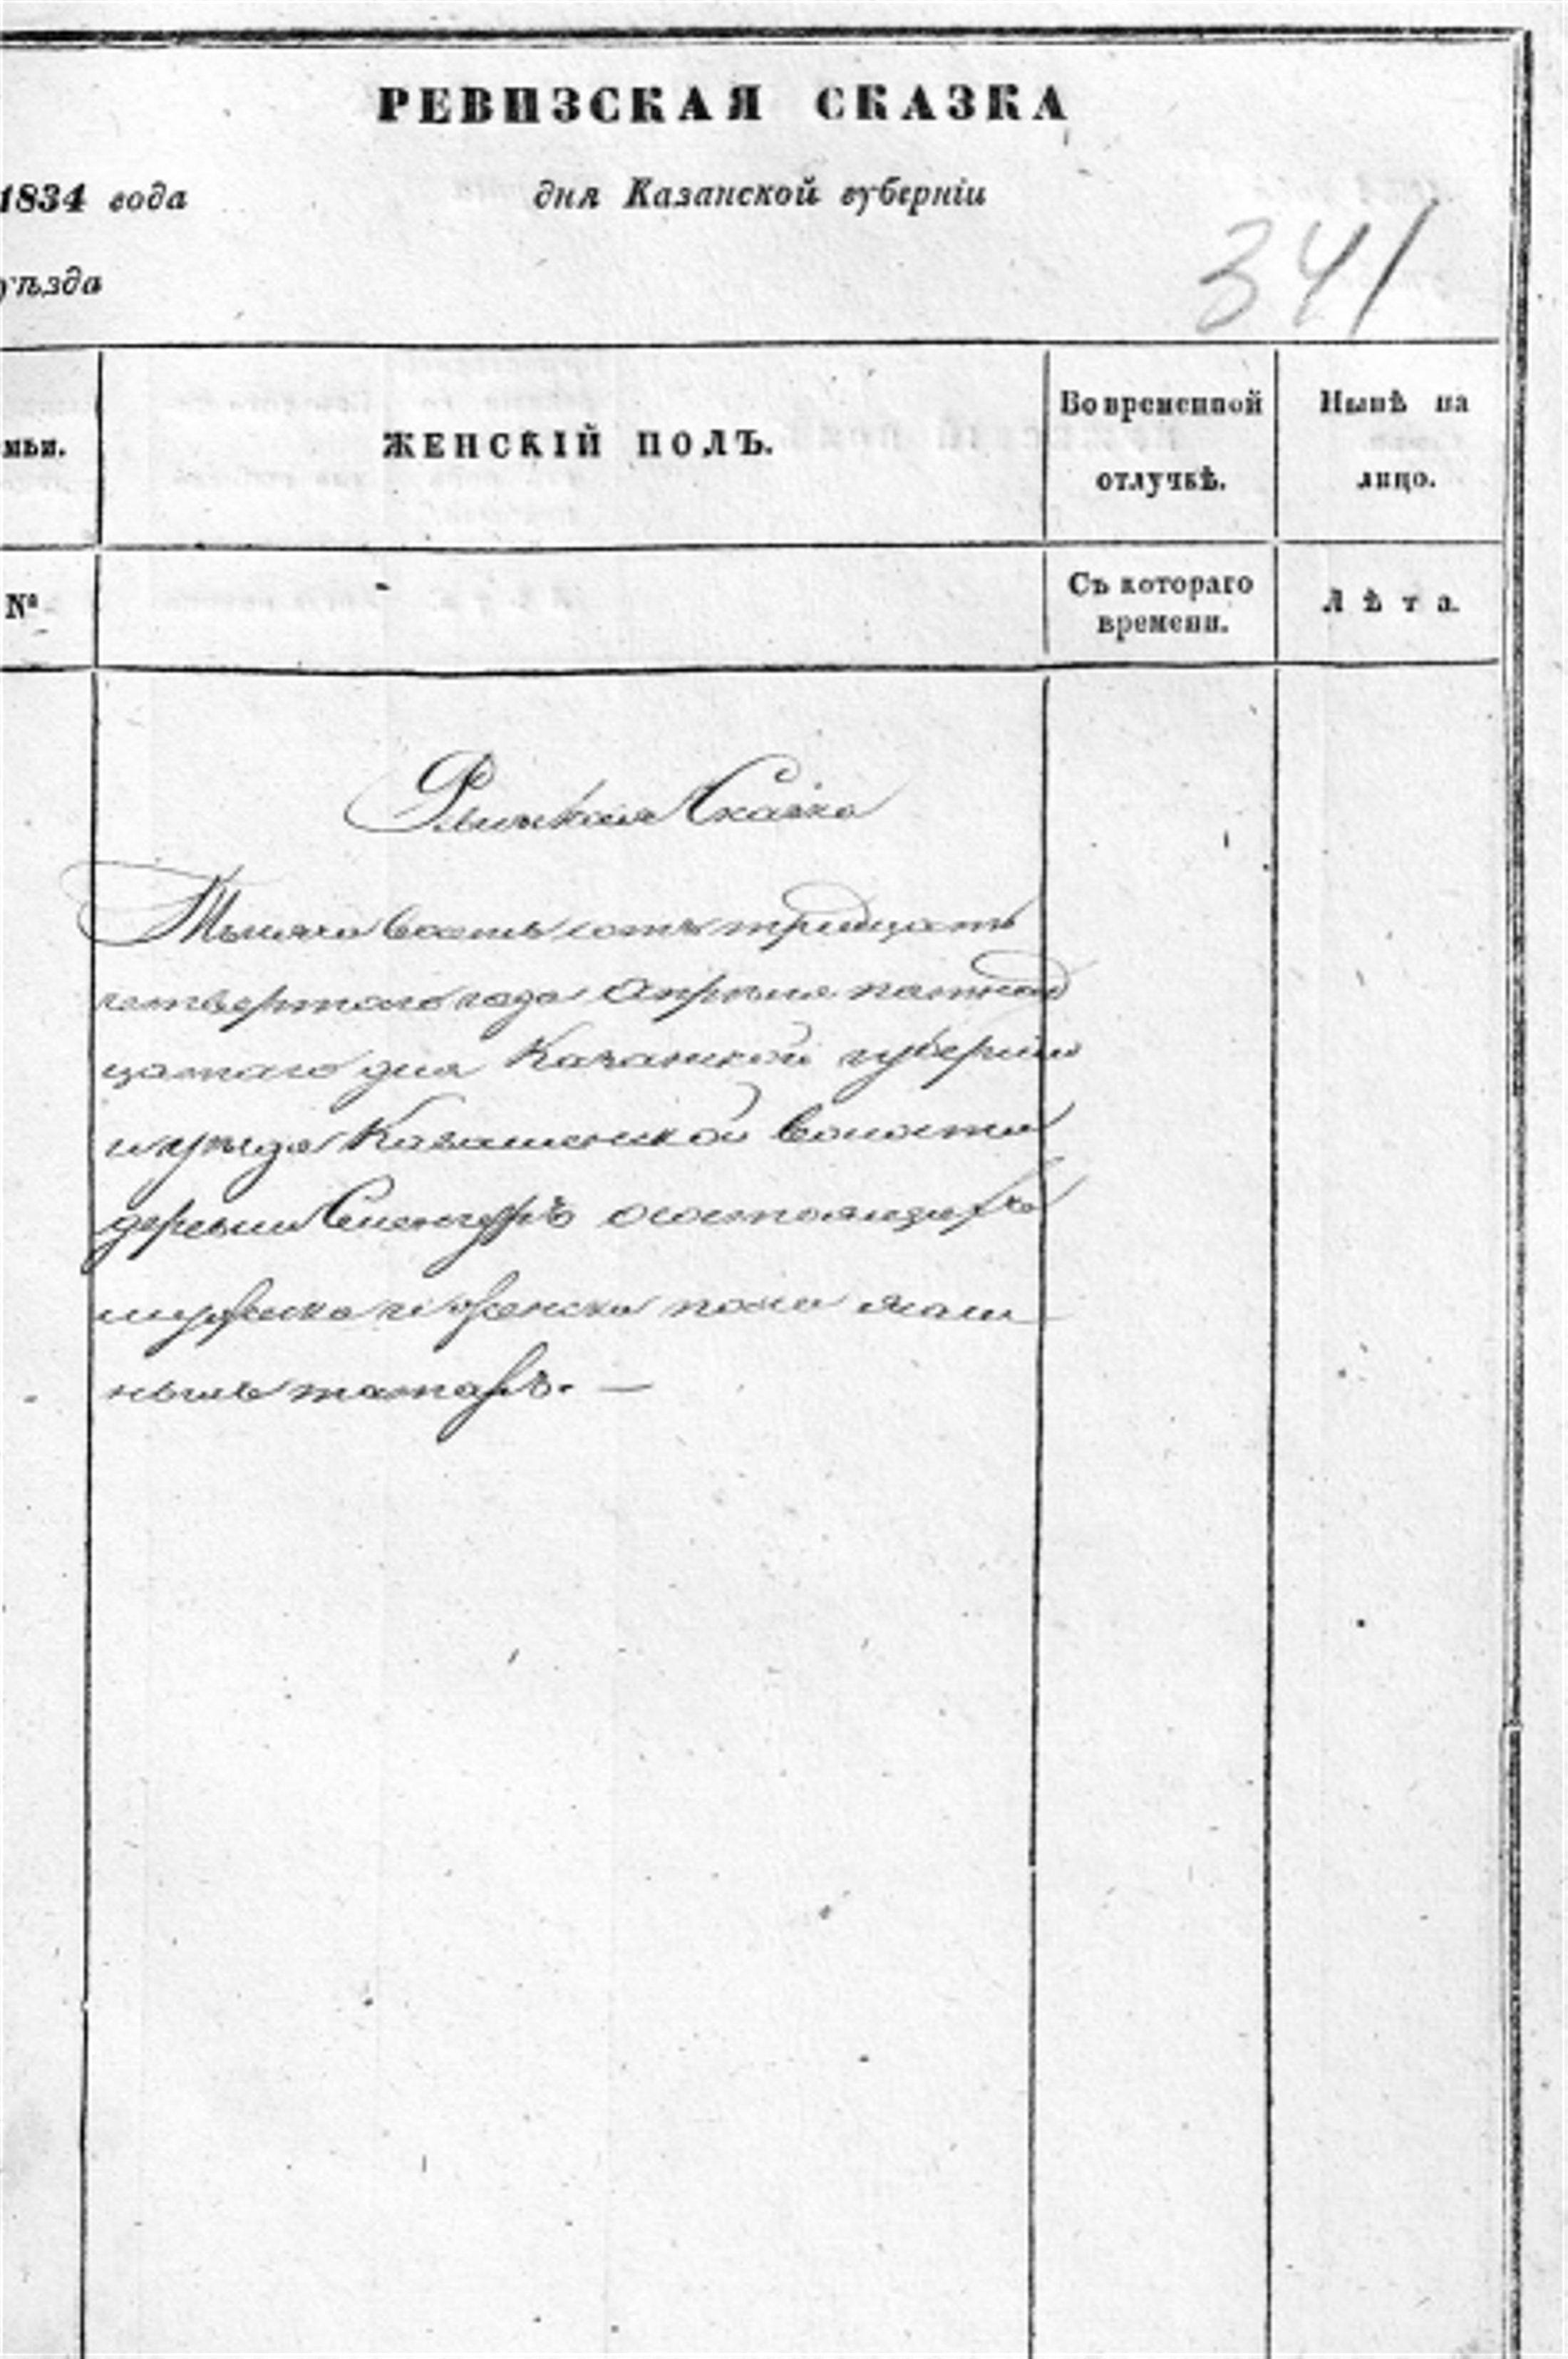 РЕВИЗСКАЯ СКАЗКА
1834 года дня Казанской губерніи
уѣзда
341
мьи. ЖЕНСКІЙ ПОЛЪ. Во временной отлучкѣ. Нынѣ на лицо.
№ Съ котораго времени. Лѣта.
Ревизская Сказка
Тысяча восемь сотъ тридцать
четвертаго года Апреля пятнад
цатаго дня Казанской губерніи
и уѣзда Кавалинской волости
деревни осостоящихъ
мужеска и женска пола ясаш
ныхъ татаръ. —